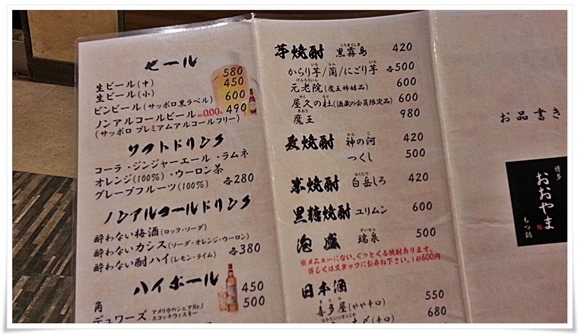 ビール
生ビール(中) 580
生ビール(小) 450
ビンビール(サッポロ黒ラベル) 600
ノンアルコールビール 490
(サッポロ プレミアムアルコールフリー)
ソフトドリンク
コーラ・ジンジャーエール・ラムネ
オレンジ(100%)・ウーロン茶
グレープフルーツ(100%) 各280
ノンアルコールドリンク
酔わない梅酒(ロック・ソーダ)
酔わないカシス(ソーダ・オレンジ・ウーロン)
酔わない酎ハイ(レモン・ライム) 各380
ハイボール
角 450
デュワーズ アメリカのシェアNo.1 スコッチウイスキー 500
芋焼酎 黒霧島 420
からり芋/蘭/にごり芋 各500
元老院(魔王姉妹品) 600
屋久の杜(酒蔵の会員限定品) 600
魔王 980
麦焼酎 神の河 420
つくし 500
米焼酎 白岳しろ 420
黒糖焼酎 ユリムン 600
泡盛 瑞泉 500
※メニューにない、ぐっとくる焼酎あります。
詳しくはスタッフにお尋ね下さい。
600円
日本酒
喜多屋(やや辛口) 550
(辛口) 680
お品書き
博多
おおやま
もつ鍋